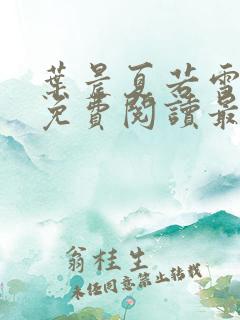 葉晨夏若雪
免費閱讀最
翁桂生
未经同意禁止转载